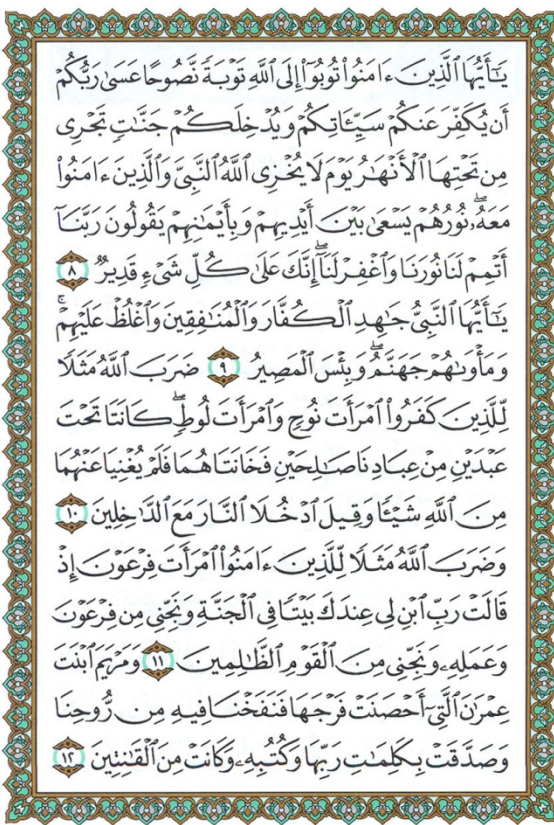 يَـٰٓأَيُّهَا ٱلَّذِينَ ءَامَنُوا۟ تُوبُوٓا۟ إِلَى ٱللَّهِ تَوْبَةً نَّصُوحًا عَسَىٰ رَبُّكُمْ
أَن يُكَفِّرَ عَنكُمْ سَيِّـَٔاتِكُمْ وَيُدْخِلَكُمْ جَنَّـٰتٍ تَجْرِى
مِن تَحْتِهَا ٱلْأَنْهَـٰرُ يَوْمَ لَا يُخْزِى ٱللَّهُ ٱلنَّبِىَّ وَٱلَّذِينَ ءَامَنُوا۟
مَعَهُۥۖ نُورُهُمْ يَسْعَىٰ بَيْنَ أَيْدِيهِمْ وَبِأَيْمَـٰنِهِمْ يَقُولُونَ رَبَّنَآ
أَتْمِمْ لَنَا نُورَنَا وَٱغْفِرْ لَنَآۖ إِنَّكَ عَلَىٰ كُلِّ شَىْءٍ قَدِيرٌ ٨
يَـٰٓأَيُّهَا ٱلنَّبِىُّ جَـٰهِدِ ٱلْكُفَّارَ وَٱلْمُنَـٰفِقِينَ وَٱغْلُظْ عَلَيْهِمْۚ
وَمَأْوَىٰهُمْ جَهَنَّمُۖ وَبِئْسَ ٱلْمَصِيرُ ٩ ضَرَبَ ٱللَّهُ مَثَلًا
لِّلَّذِينَ كَفَرُوا۟ ٱمْرَأَتَ نُوحٍ وَٱمْرَأَتَ لُوطٍۖ كَانَتَا تَحْتَ
عَبْدَيْنِ مِنْ عِبَادِنَا صَـٰلِحَيْنِ فَخَانَتَاهُمَا فَلَمْ يُغْنِيَا عَنْهُمَا
مِنَ ٱللَّهِ شَيْـًٔا وَقِيلَ ٱدْخُلَا ٱلنَّارَ مَعَ ٱلدَّٰخِلِينَ ١٠
وَضَرَبَ ٱللَّهُ مَثَلًا لِّلَّذِينَ ءَامَنُوا۟ ٱمْرَأَتَ فِرْعَوْنَ إِذْ
قَالَتْ رَبِّ ٱبْنِ لِى عِندَكَ بَيْتًا فِى ٱلْجَنَّةِ وَنَجِّنِى مِن فِرْعَوْنَ
وَعَمَلِهِۦ وَنَجِّنِى مِنَ ٱلْقَوْمِ ٱلظَّـٰلِمِينَ ١١ وَمَرْيَمَ ٱبْنَتَ
عِمْرَٰنَ ٱلَّتِىٓ أَحْصَنَتْ فَرْجَهَا فَنَفَخْنَا فِيهِ مِن رُّوحِنَا
وَصَدَّقَتْ بِكَلِمَـٰتِ رَبِّهَا وَكُتُبِهِۦ وَكَانَتْ مِنَ ٱلْقَـٰنِتِينَ ١٢